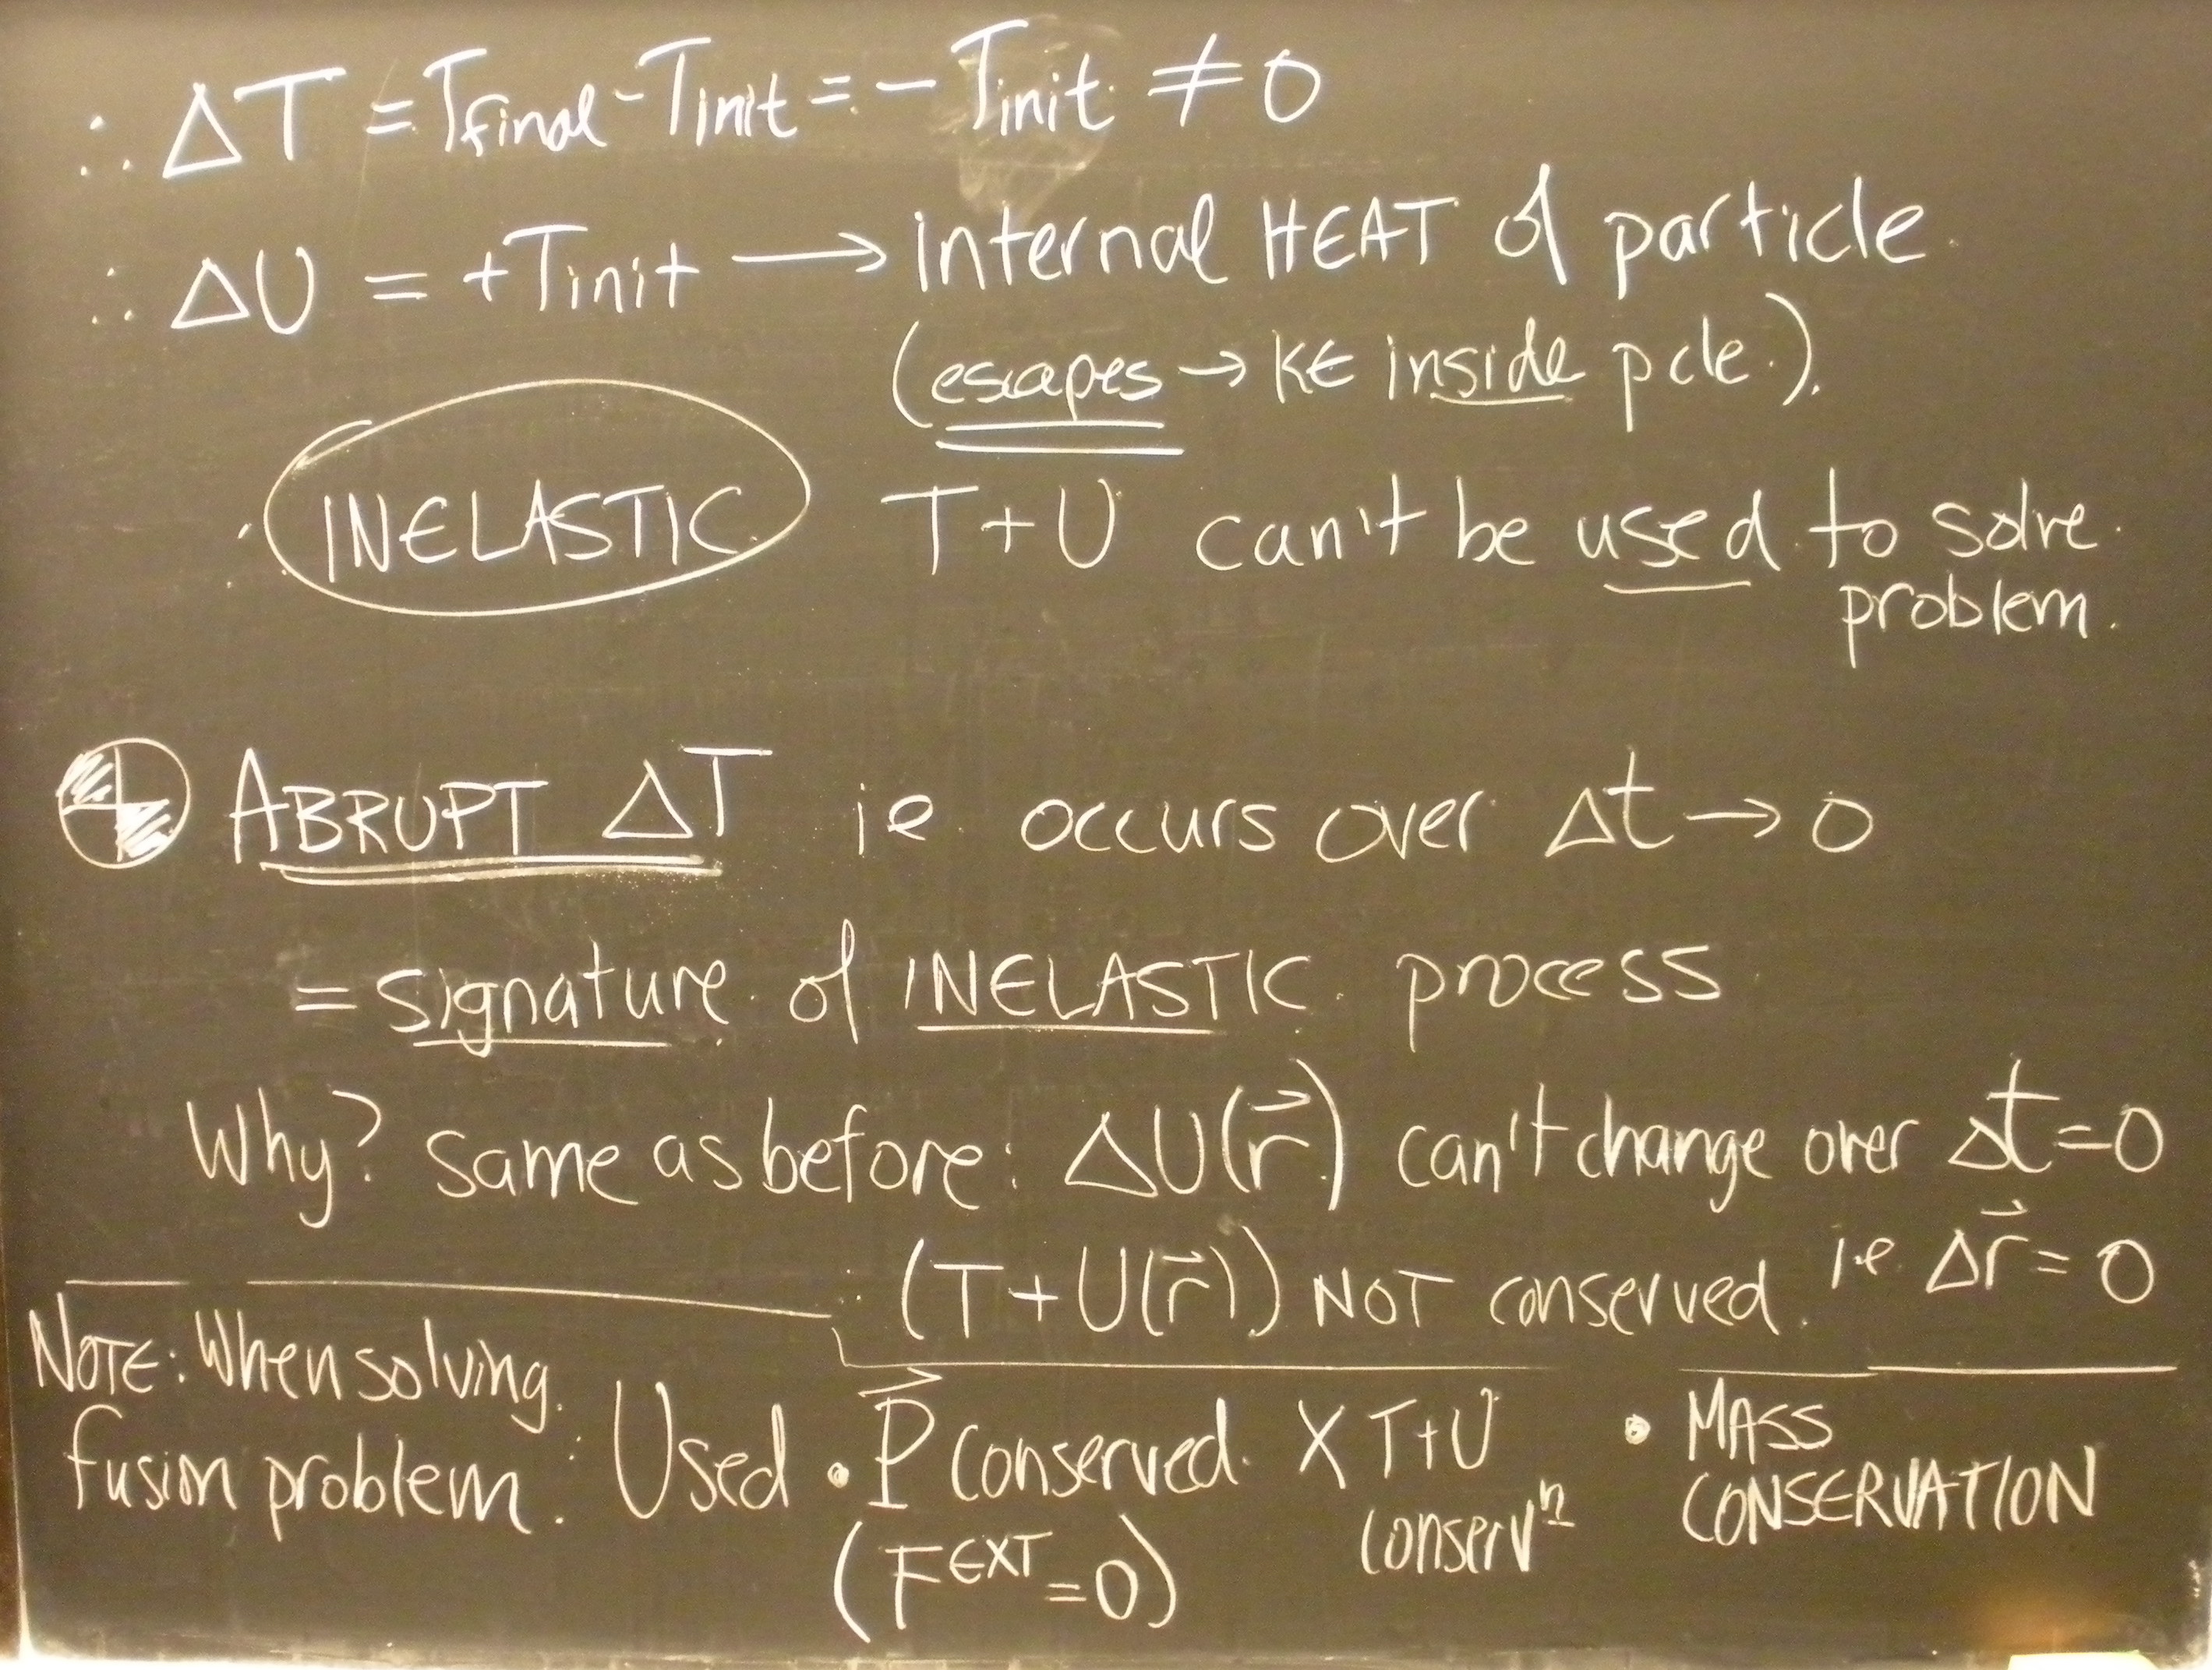 ∴ ΔT = Tfinal - Tinit = - Tinit ≠ 0
∴ ΔU = +Tinit → internal HEAT of particle.
(escapes → KE inside pcle.).
INELASTIC T+U can't be used to solve
problem.
ABRUPT ΔT ie occurs over Δt → 0
= signature of INELASTIC process
Why? same as before: ΔU(r⃗) can't change over Δt=0
∴ (T+U(r⃗)) NOT conserved. i.e. Δr⃗ = 0
NOTE: When solving
fusion problem: Used • P⃗ conserved. X T+U • MASS
conservⁿ CONSERVATION
(F^EXT = 0)